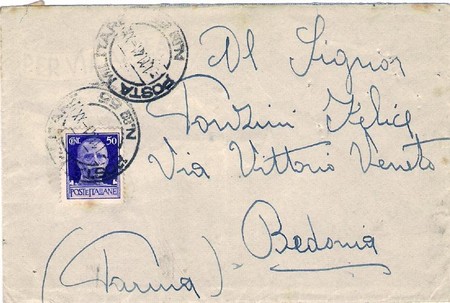 POSTA MILITARE N. 55
Al Signor
Tonzini Felice
Via Vittorio Veneto
Bedonia
(Parma)
CENT. 50
POSTE ITALIANE